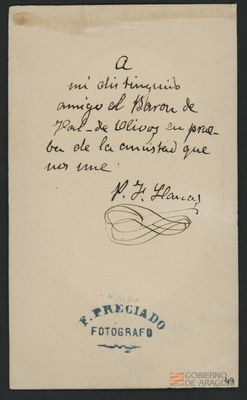 A
mi distinguido
amigo el Baron de
Val-de Olivos en prue-
ba de la amistad que
nos une
F. PRECIADO
FOTÓGRAFO
GOBIERNO
DE ARAGON